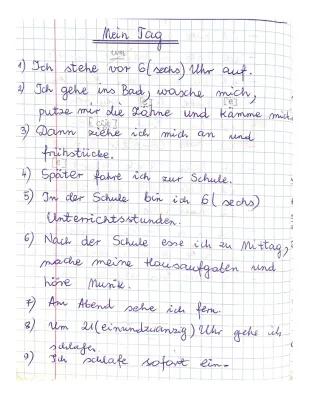 Mein Tag
um
1) Ich stehe vor 6 (sechs) Uhr auf.
2) Ich gehe ins Bad, wasche mich,
putze mir die Zähne und kämme mich.
3) Dann ziehe ich mich an und
frühstücke.
4) Später fahre ich zur Schule.
5) In der Schule bin ich 6 (sechs)
Unterrichtsstunden.
6) Nach der Schule esse ich zu Mittag,
mache meine Hausaufgaben und
höre Musik.
7) Am Abend sehe ich fern.
8) Um 21 (einundzwanzig) Uhr gehe ich
schlafen.
9) Ich schlafe sofort ein.